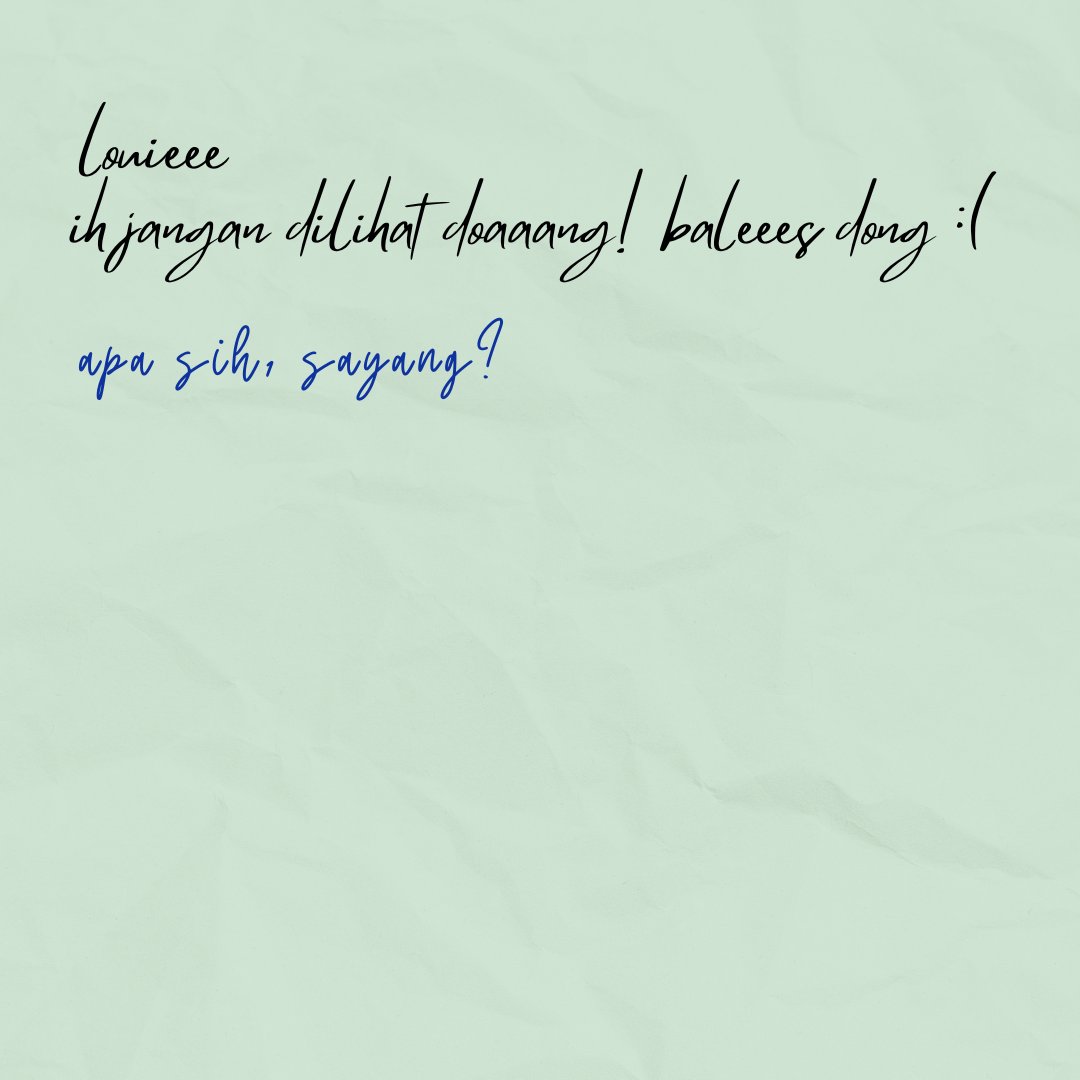 Louieee
ih jangan dilihat doaaang! baleees dong :(
apa sih, sayang?